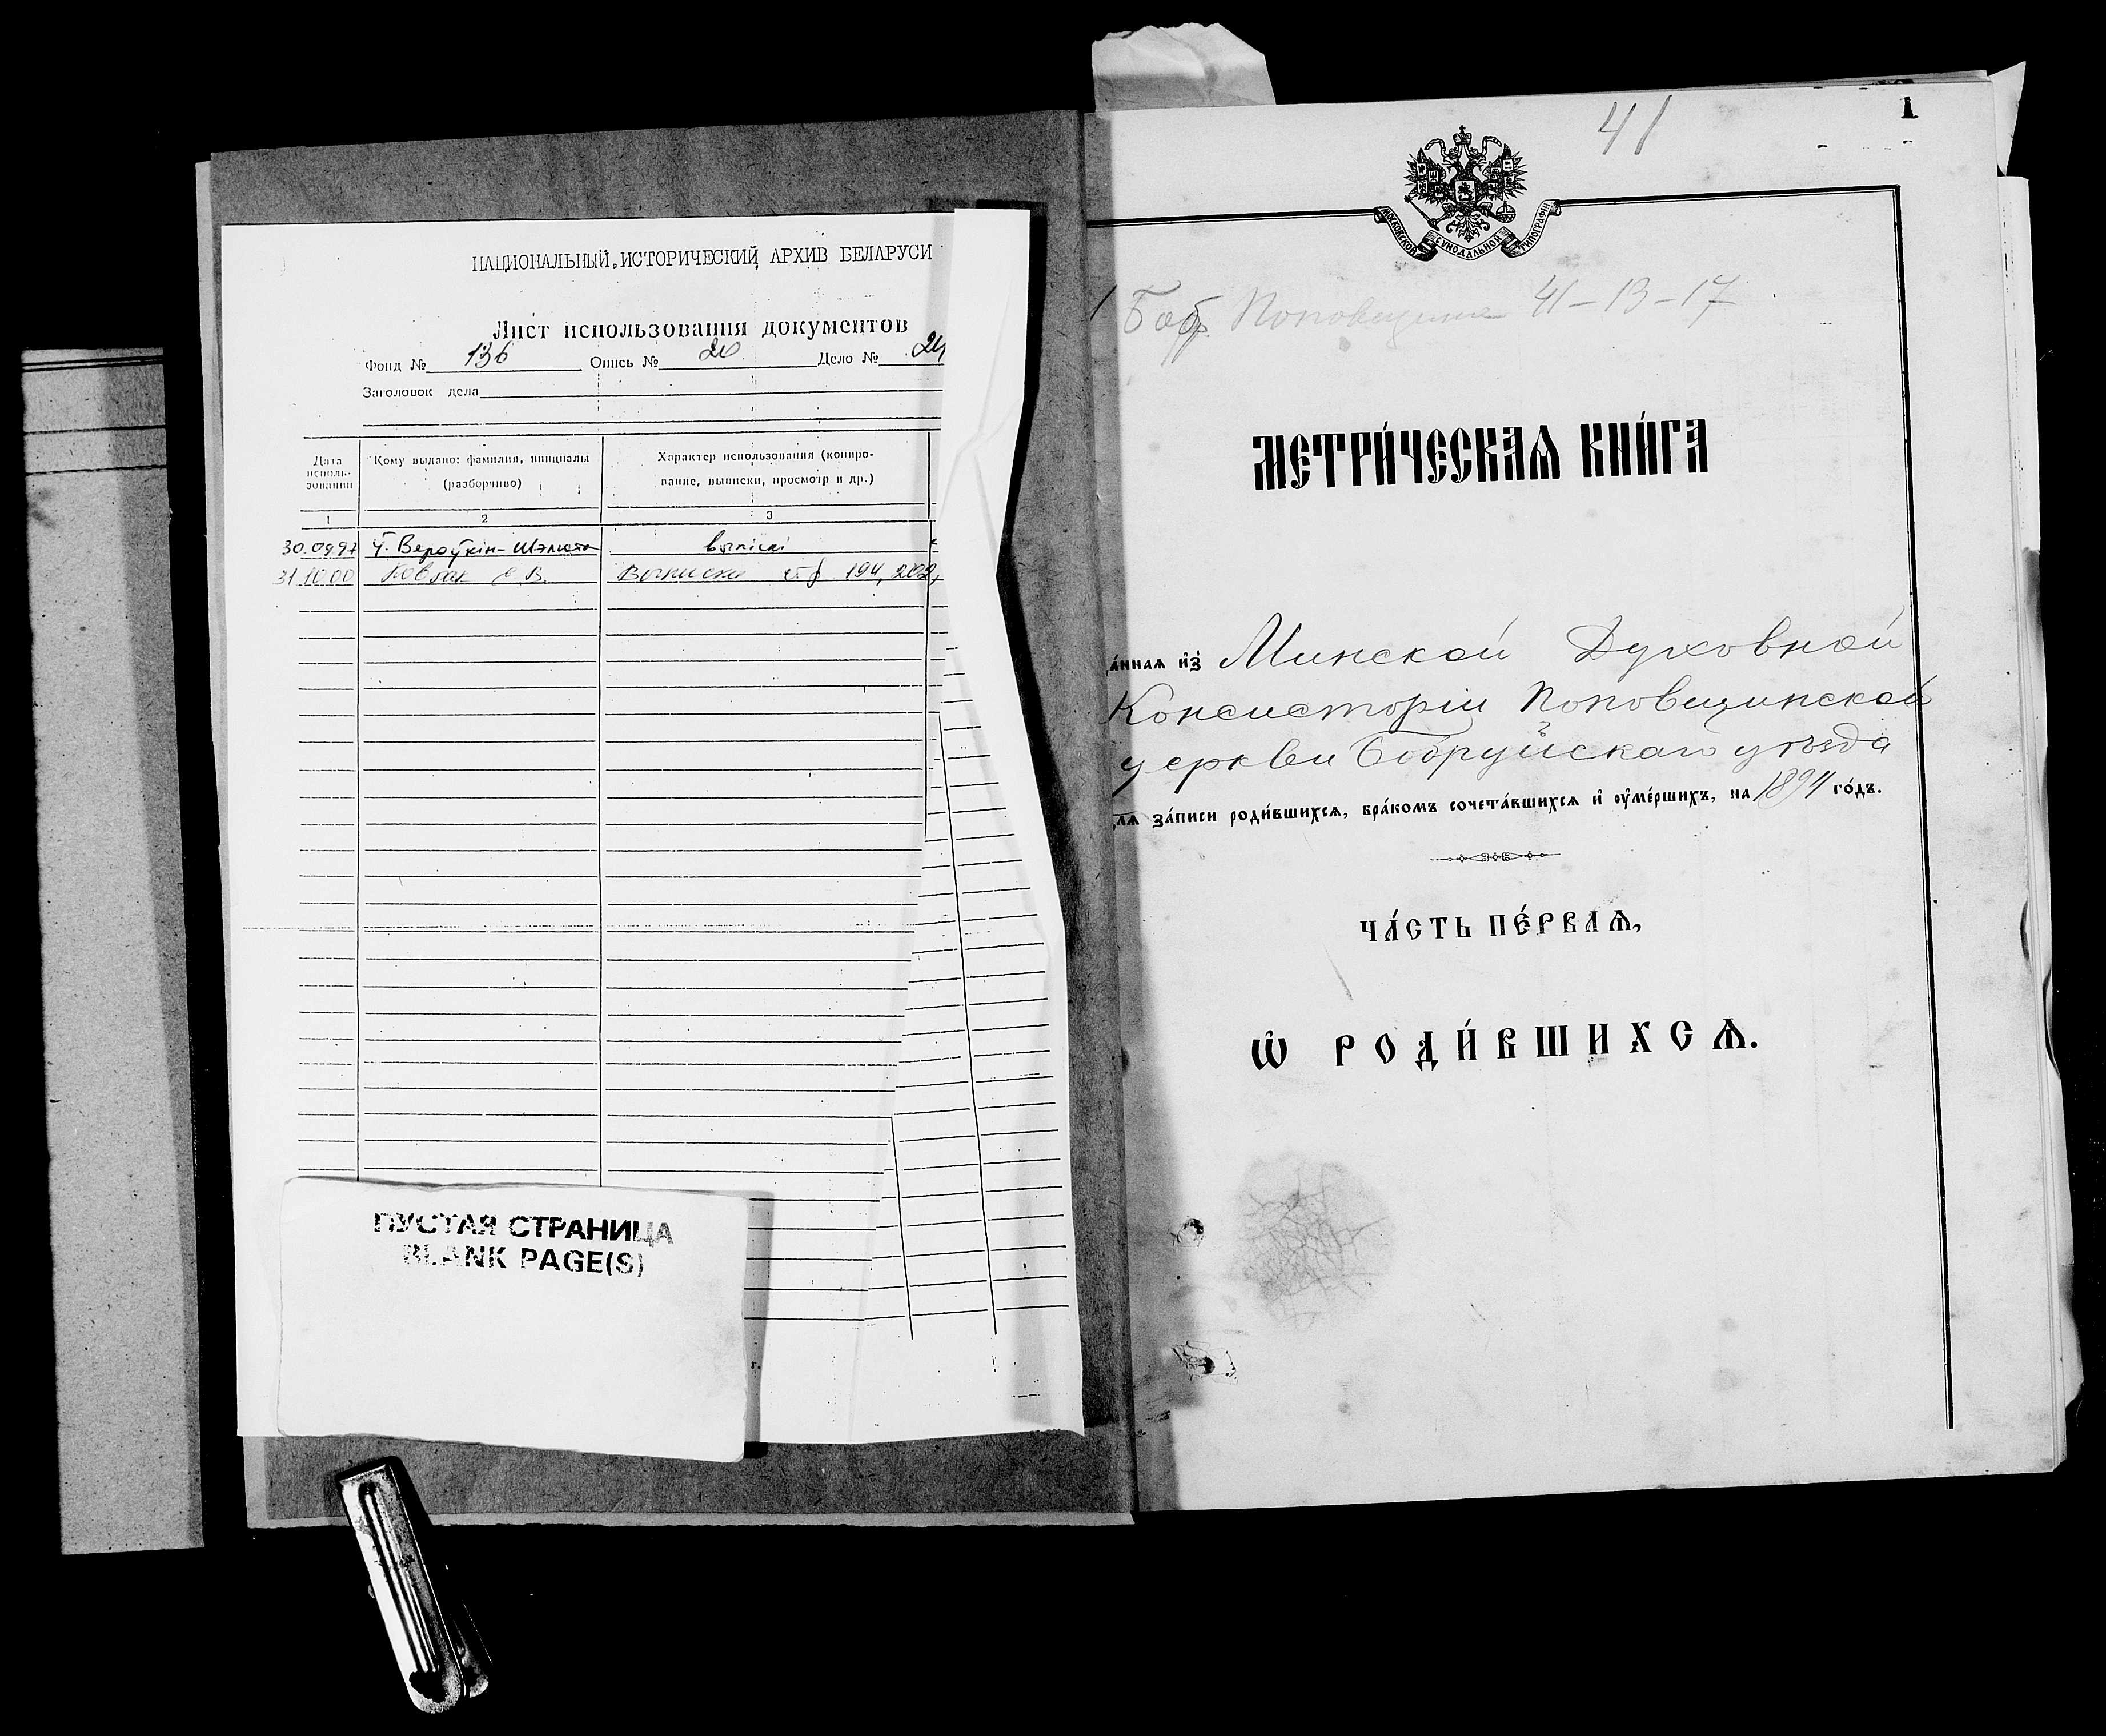 НАЦИОНАЛЬНЫЙ ИСТОРИЧЕСКИЙ АРХИВ БЕЛАРУСИ
Лист использования документов
Фонд № 136 Опись № 20 Дело № 24
Заголовок дела
Дата исполь-зования
Кому выдано: фамилия, инициалы (разборчиво)
Характер использования (копиро-вание, выписки, просмотр и др.)
1 2 3
30.09.97 У. Вероўкін-Шэлюта выпіскі
31.10.00 Выписки стр 194, 202,
ПУСТАЯ СТРАНИЦА
BLANK PAGE(S)
г.
41
1
МОСКОВСКОЙ СѴНОДАЛЬНОЙ ТИПОГРАФІИ
Бобр. Поповщина 41-13-17
МЕТРИ́ЧЕСКАѦ КНИ́ГА
а́ннаѧ и҆з̾ Минской Духовной
Консисторіи Поповщинской
церкви Бобруйскаго уѣзда
длѧ за́писи роди́вшихсѧ, бра́комъ сочета́вшихсѧ и҆ оу҆ме́ршихъ, на 1894 го́дъ.
ЧА́СТЬ ПЕ́РВАѦ,
Ѽ РОДИ́ВШИХСѦ.